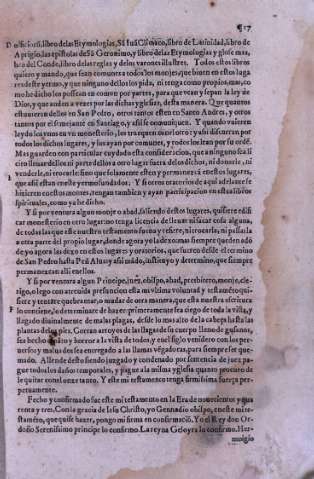 D
libro de las Etymologias, Sã Iuã Climaco, libro de
Aprigio, las epistolas de Sã Geronimo, y libro de las Etymologias y glosemas,
libro del Conde, libro de las reglas, y de los varones illustres. Todos estos libros
quiero y mando, que sean comunes a todos los monjes, que biuen en estos luga
res deste yermo, y que ninguno dellos los pida, ni tenga como propios, mas co
mo he dicho los posean en comun por partes, para que vean y sepan la ley de
Dios, y que anden a vezes por las dichas yglesias, desta manera. Que quantos
estuuieren dellos en San Pedro, otros tantos esten en Santo Andres, y otros
tantos por el semejante en Santiago, y assi se comuniquen. Y quando vuieren
leydo los vnos en vn monesterio, los truequen con el otro: y assi discurran por
todos los dichos lugares, y los ayan por comunes, y todos los lean por su ordẽ.
Mas guarden con particular cuydado esta consideracion, que a ninguno sea li
cito lleuar dellos ni parte dellos a otro lugar fuera delos dichos, ni donarle, ni
venderle, ni trocarle: sino que solamente esten y permanezcan en estos lugares,
que assi estan en este yermo fundados. Y si otros oratorios de aqui adelante se
hizieren en estos montes, tengan tambien y ayan participacion en estos libros
spirituales, como ya he dicho.
Y si por ventura algun monje o abad, saliendo destos lugares, quisiere edifi
car monesterio en otro lugar: no tenga licencia de lleuar ni sacar cosa alguna,
de todas las que este nuestro testamento refiere, ni trocarla, ni donarla, ni passalla
a otra parte del propio lugar, donde agora yo la dexo: mas siempre queden adõ
de yo agora las dexo en estos lugares y oratorios, que fueren desde el termino
de San Pedro hasta Peñ Alua: y assi mãdo, instituyo, y determino, que siempre
permanezcan alli en ellos.
Y si por ventura algun Principe, juez, obispo, abad, presbitero, monje, cle
rigo, o lego con atreuida presuncion esta mi vltima voluntad y testamẽto qui
siere y tentare quebrantar, o mudar de otra manera, que esta nuestra escritura
lo contiene, o determinare de hazer: primeramente sea ciego de toda la vista, y
llagado diuinalmente de malas plagas, desde lo mas alto de la cabeça hasta las
plantas de los pies. Corran arroyos de las llagas de su cuerpo lleno de gusanos,
sea hecho y horror a la vista de todos, y en el siglo venidero con los per
uersos y malos sea entregado a las llamas vẽgadoras, para siempre ser que
mado. Allende desto siendo juzgado y condenado por sentencia de juez pa
gue todos los daños temporales, y pague a la misma yglesia quanto procure de
le quitar con otro tanto. Y este mi testamento tenga firmissima fuerça per
petuamente.
Fecho y confirmado fue este mi testamento en la Era de nouecientos y qua
renta y tres. Con la gracia de Iesu Christo, yo Gennadio obispo, en este mi te-
stamẽto, que quise hazer, pongo mi firma en confirmacion. Yo el Rey don Or
doño Serenissimo principe lo confirmo. La reyna Geloyra lo confirmo. Her-
moigio